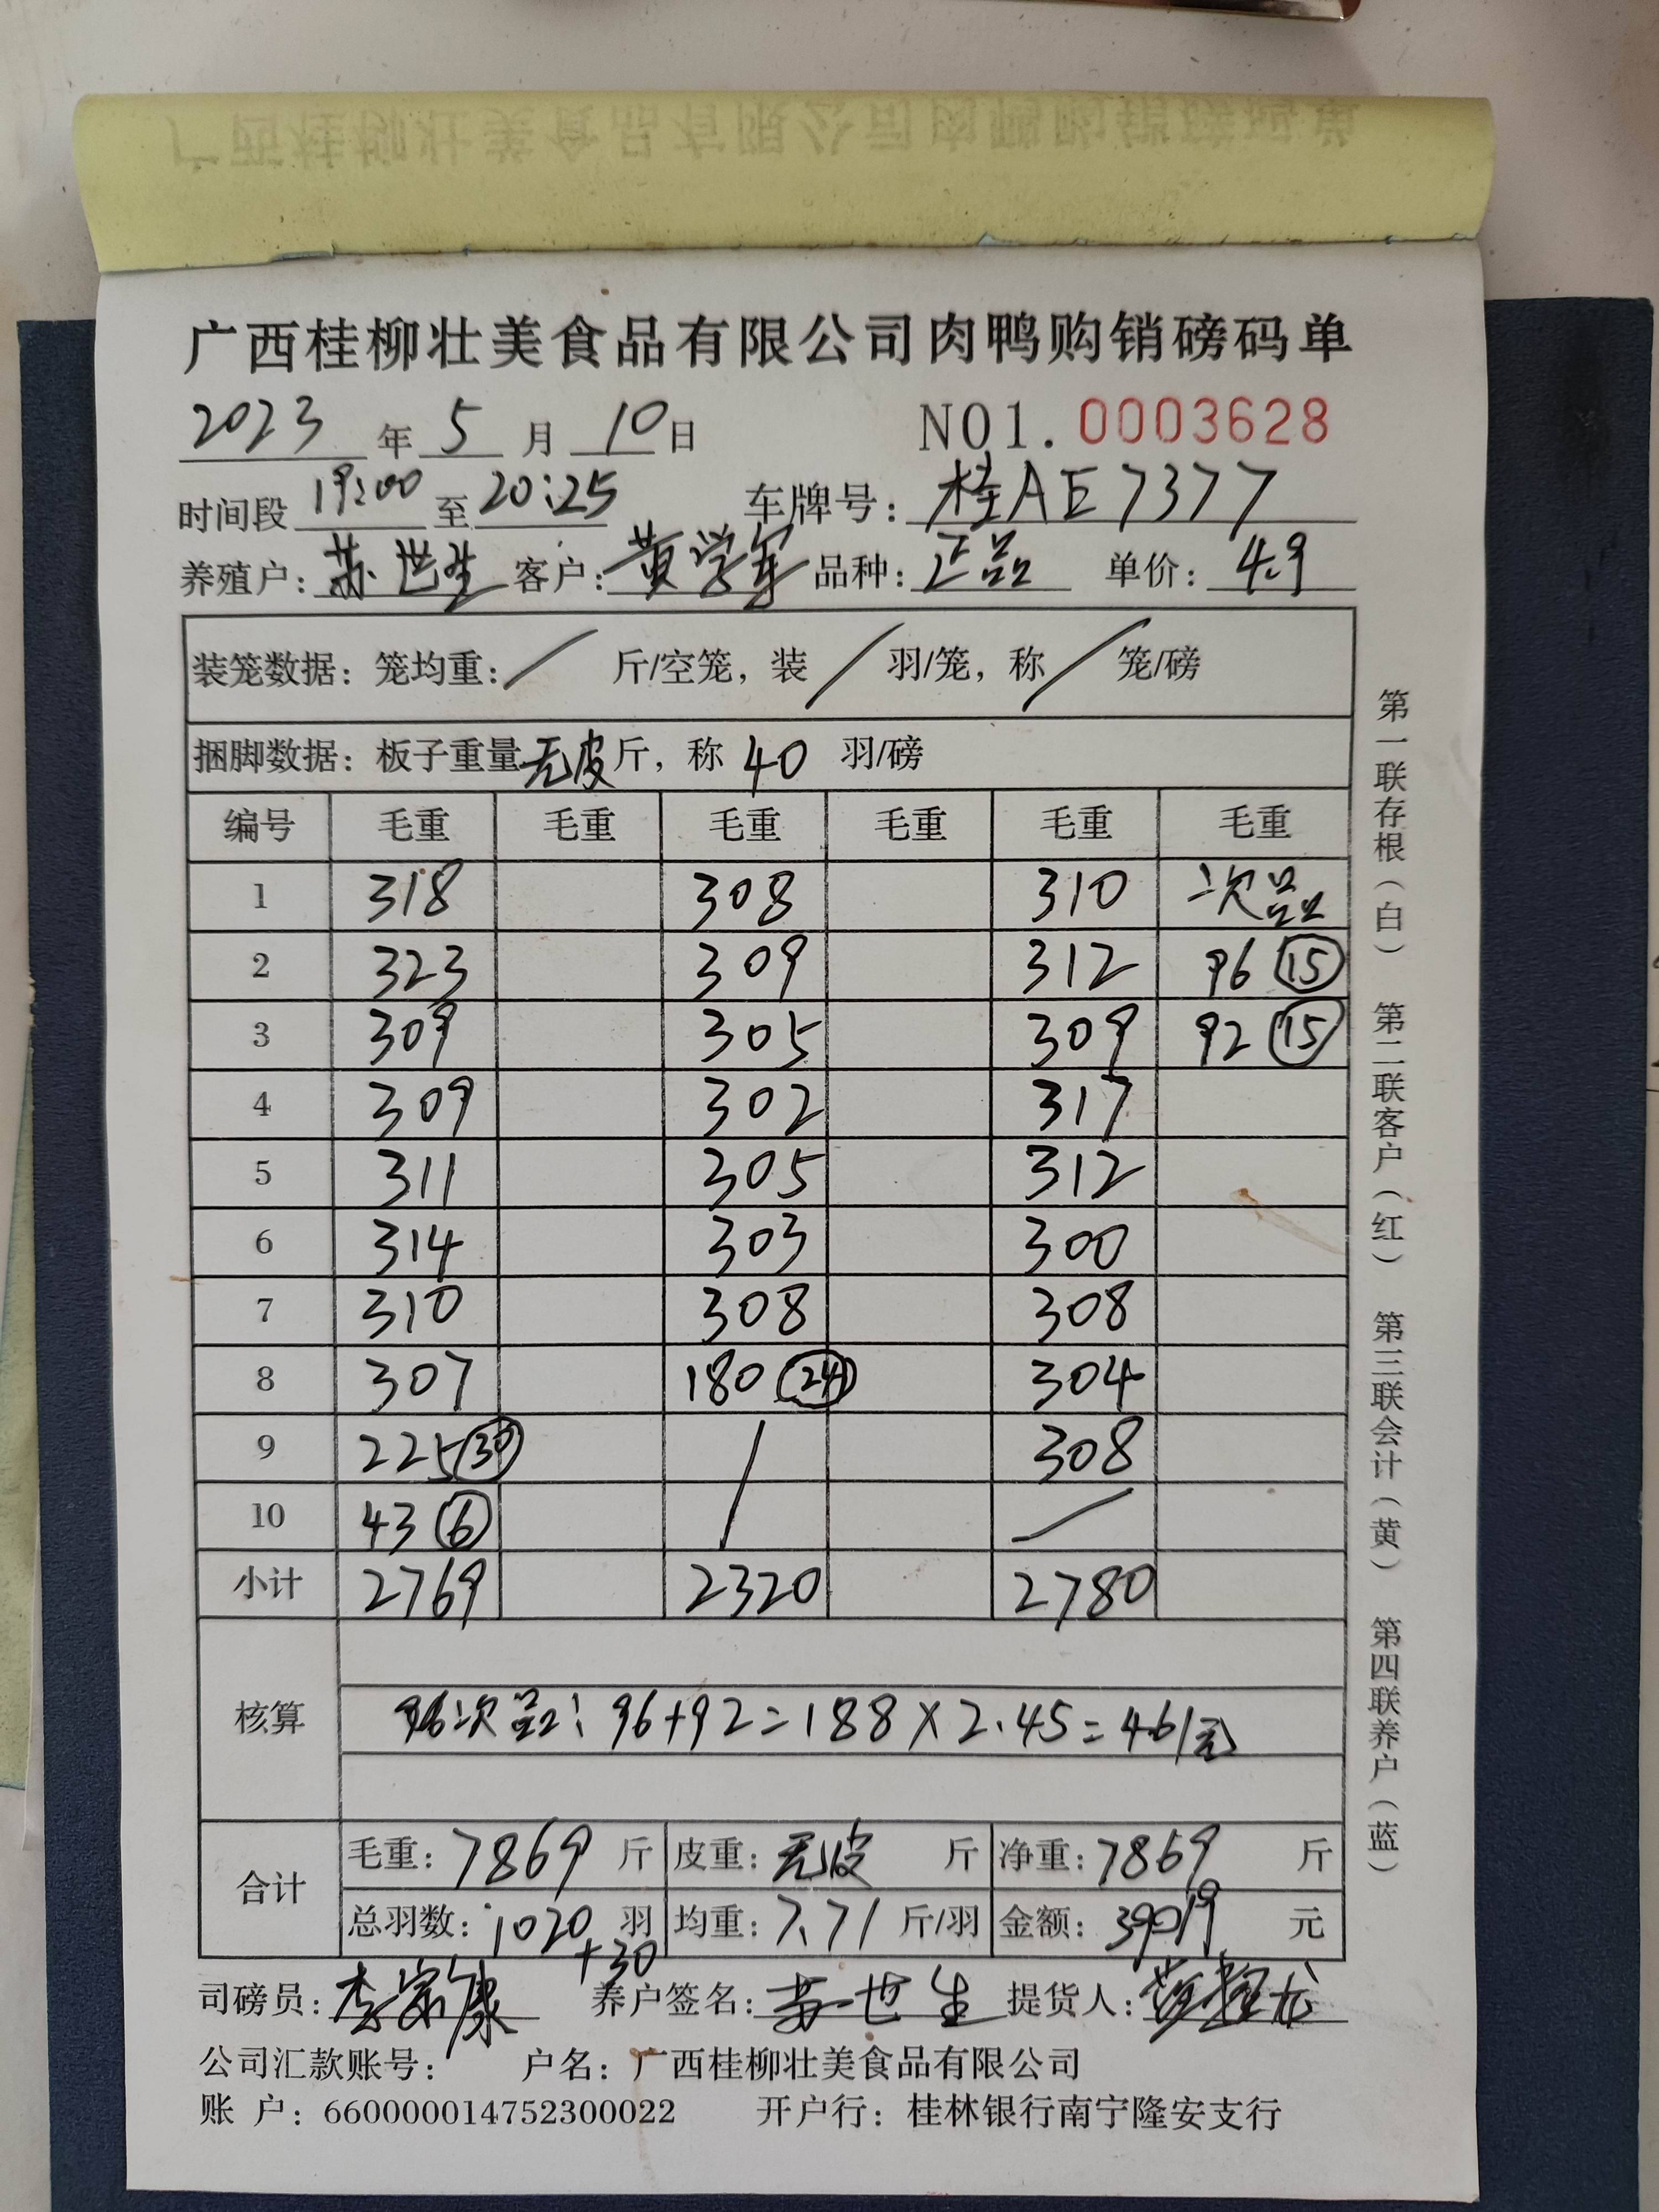 广西桂柳壮美食品有限公司肉鸭购销磅码单
广西桂柳壮美食品有限公司肉鸭购销磅码单
2023 年 5 月 10 日 NO1. 0003628
时间段 19:00 至 20:25 车牌号: 桂AE7377
养殖户: 苏世生 客户: 黄学军 品种: 正品 单价: 4.9
装笼数据: 笼均重: / 斤/空笼, 装 / 羽/笼, 称 / 笼/磅
捆脚数据: 板子重量 无皮 斤, 称 40 羽/磅
编号 毛重 毛重 毛重 毛重 毛重 毛重
1 318 308 310 次品
2 323 309 312 96 15
3 309 305 309 92 15
4 309 302 317
5 311 305 312
6 314 303 300
7 310 308 308
8 307 180 24 304
9 225 30 / 308
10 43 6 /
小计 2769 2320 2780
核算
次品: 96+92=188×2.45=461元
合计
毛重: 7869 斤 皮重: 无皮 斤 净重: 7869 斤
总羽数: 1020 羽 均重: 7.71 斤/羽 金额: 39019 元
+30
司磅员: 李家康 养户签名: 苏世生 提货人:
公司汇款账号: 户名: 广西桂柳壮美食品有限公司
账 户: 660000014752300022 开户行: 桂林银行南宁隆安支行
第一联存根(白) 第二联客户(红) 第三联会计(黄) 第四联养户(蓝)